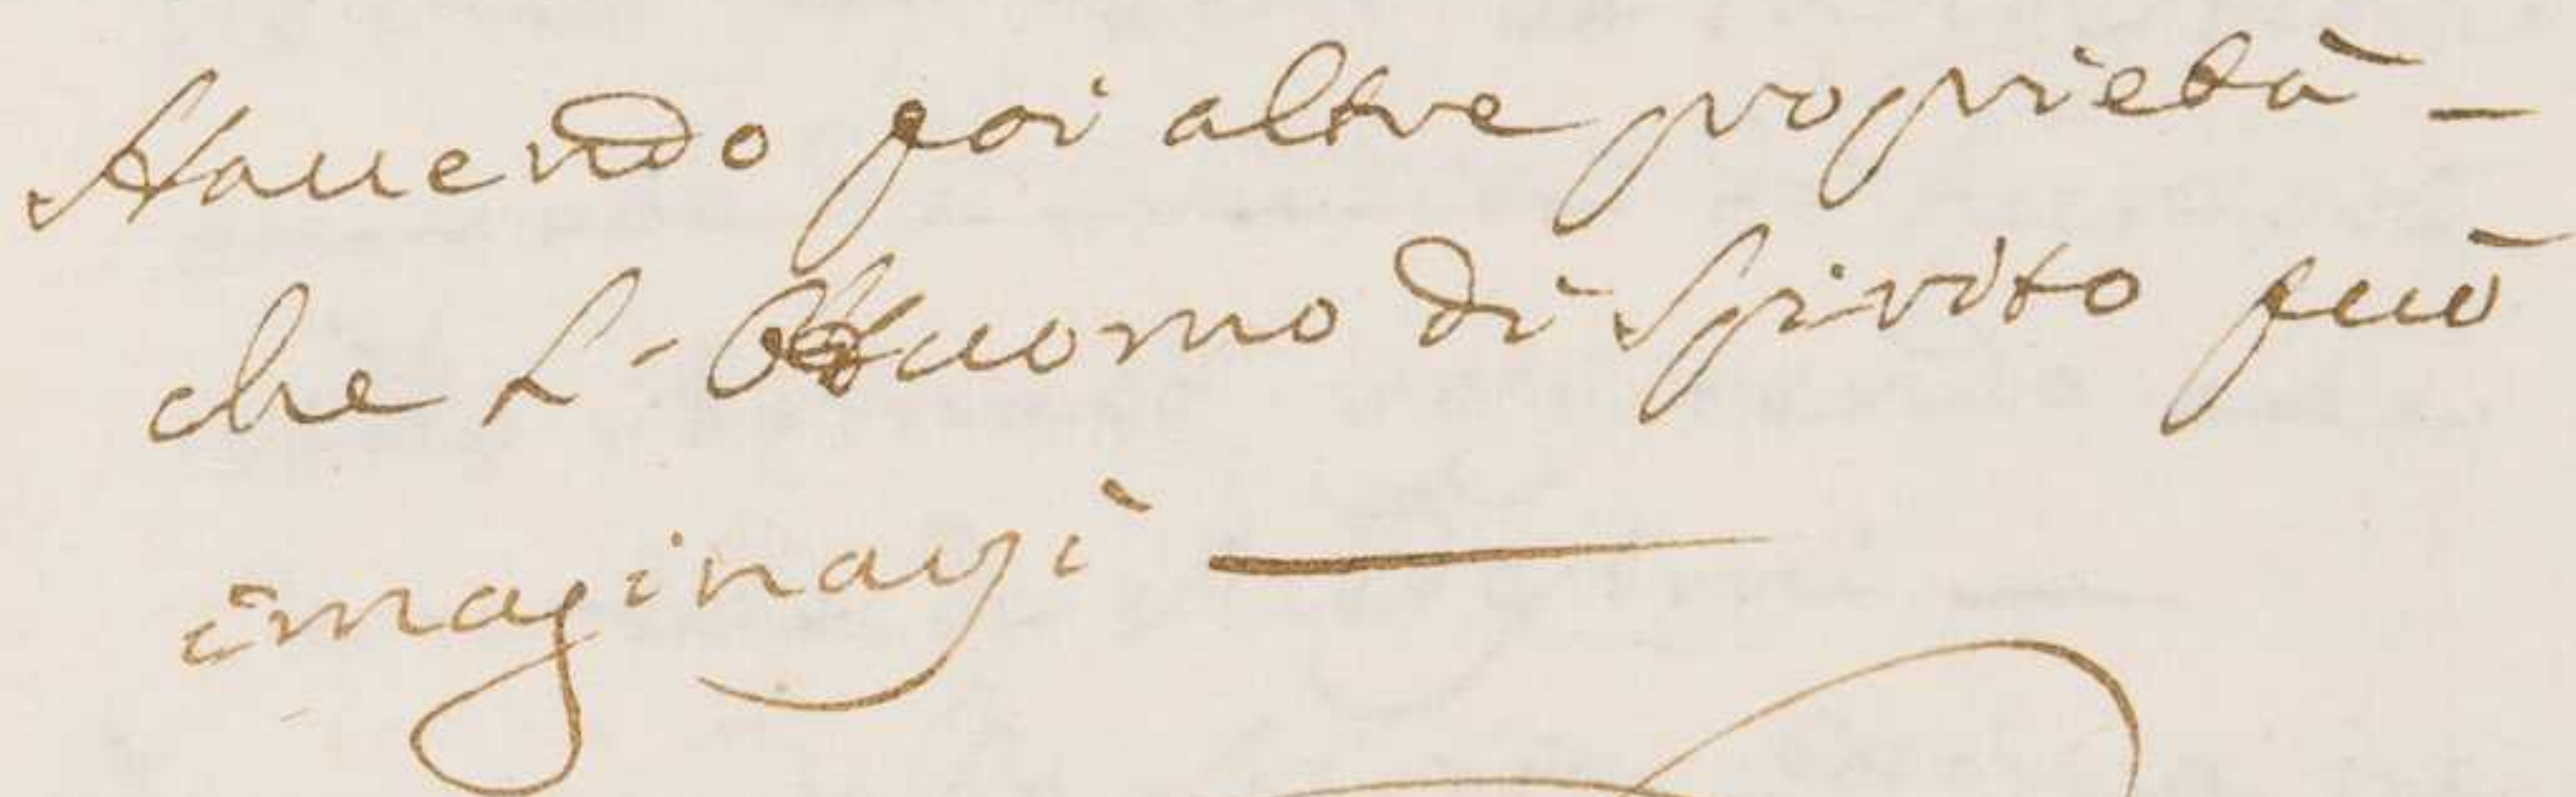 Hauendo poi altre proprietà -
che L' Huomo di Spirito può
imaginarsi —